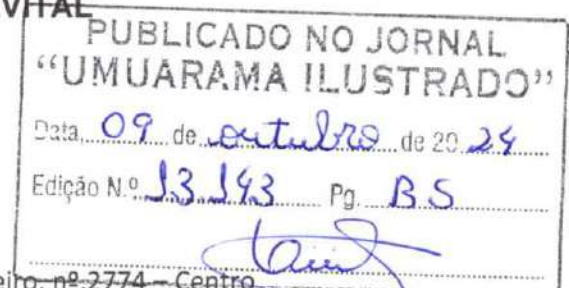 VITAL
PUBLICADO NO JORNAL
“UMUARAMA ILUSTRADO”
Data, 09 de outubro de 2024
Edição N.º 13.143 Pg. B5
eiro, nº 2774 – Centro